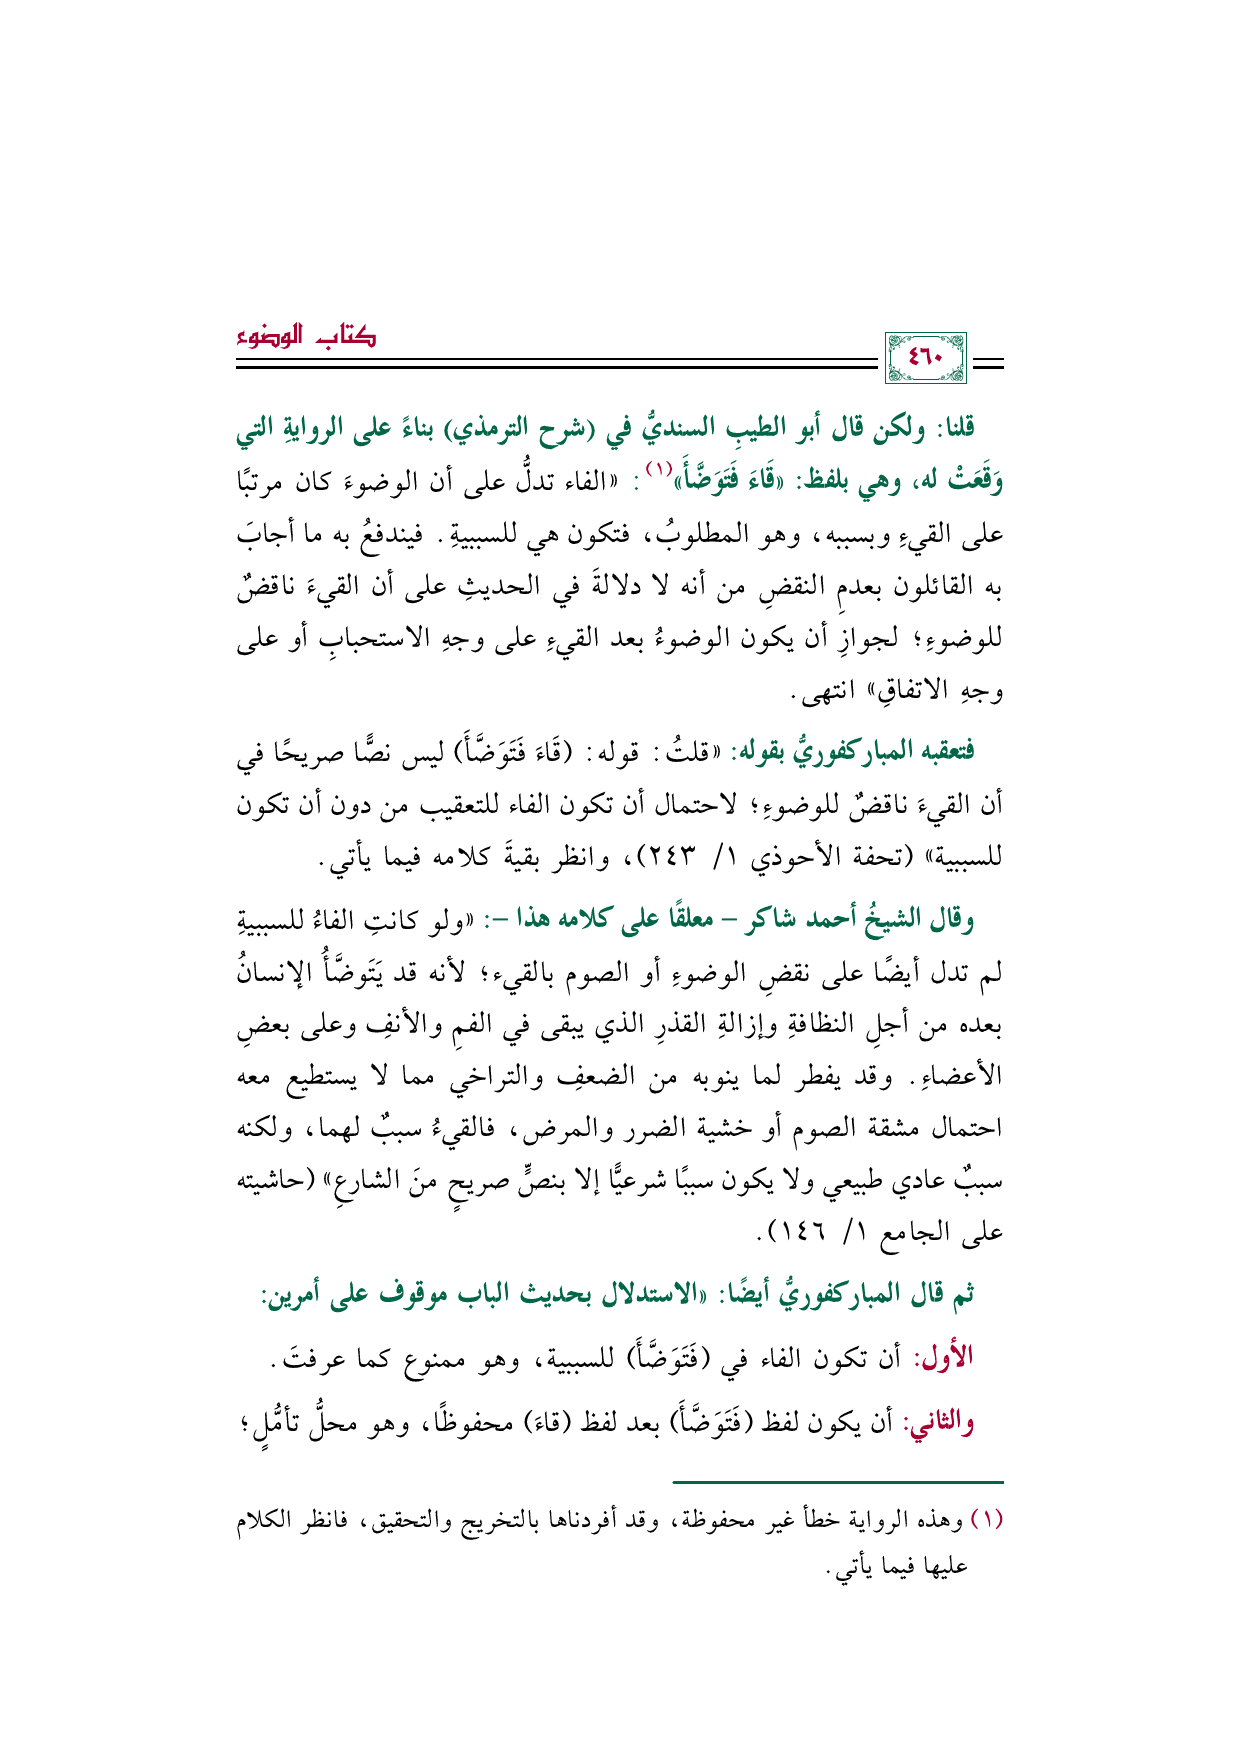 كتاب الوضوء
٤٦٠
قلنا: ولكن قال أبو الطيبِ السنديُّ في (شرح الترمذي) بناءً على الروايةِ التي
وَقَعَتْ له، وهي بلفظ: «قَاءَ فَتَوَضَّأَ»(١): «الفاء تدلُّ على أن الوضوءَ كان مرتبًا
على القيءِ وبسببه، وهو المطلوبُ، فتكون هي للسببيةِ. فيندفعُ به ما أجابَ
به القائلون بعدمِ النقضِ من أنه لا دلالةَ في الحديثِ على أن القيءَ ناقضٌ
للوضوءِ؛ لجوازِ أن يكون الوضوءُ بعد القيءِ على وجهِ الاستحبابِ أو على
وجهِ الاتفاقِ» انتهى.
فتعقبه المباركفوريُّ بقوله: «قلتُ: قوله: (قَاءَ فَتَوَضَّأَ) ليس نصًّا صريحًا في
أن القيءَ ناقضٌ للوضوءِ؛ لاحتمال أن تكون الفاء للتعقيب من دون أن تكون
للسببية» (تحفة الأحوذي ١/ ٢٤٣)، وانظر بقيةَ كلامه فيما يأتي.
وقال الشيخُ أحمد شاكر – معلقًا على كلامه هذا –: «ولو كانتِ الفاءُ للسببيةِ
لم تدل أيضًا على نقضِ الوضوءِ أو الصوم بالقيء؛ لأنه قد يَتَوضَّأُ الإنسانُ
بعده من أجلِ النظافةِ وإزالةِ القذرِ الذي يبقى في الفمِ والأنفِ وعلى بعضِ
الأعضاءِ. وقد يفطر لما ينوبه من الضعفِ والتراخي مما لا يستطيع معه
احتمال مشقة الصوم أو خشية الضرر والمرض، فالقيءُ سببٌ لهما، ولكنه
سببٌ عادي طبيعي ولا يكون سببًا شرعيًّا إلا بنصٍّ صريحٍ منَ الشارعِ» (حاشيته
على الجامع ١/ ١٤٦).
ثم قال المباركفوريُّ أيضًا: «الاستدلال بحديث الباب موقوف على أمرين:
الأول: أن تكون الفاء في (فَتَوَضَّأَ) للسببية، وهو ممنوع كما عرفتَ.
والثاني: أن يكون لفظ (فَتَوَضَّأَ) بعد لفظ (قاءَ) محفوظًا، وهو محلُّ تأمُّلٍ؛
(١) وهذه الرواية خطأ غير محفوظة، وقد أفردناها بالتخريج والتحقيق، فانظر الكلام
عليها فيما يأتي.